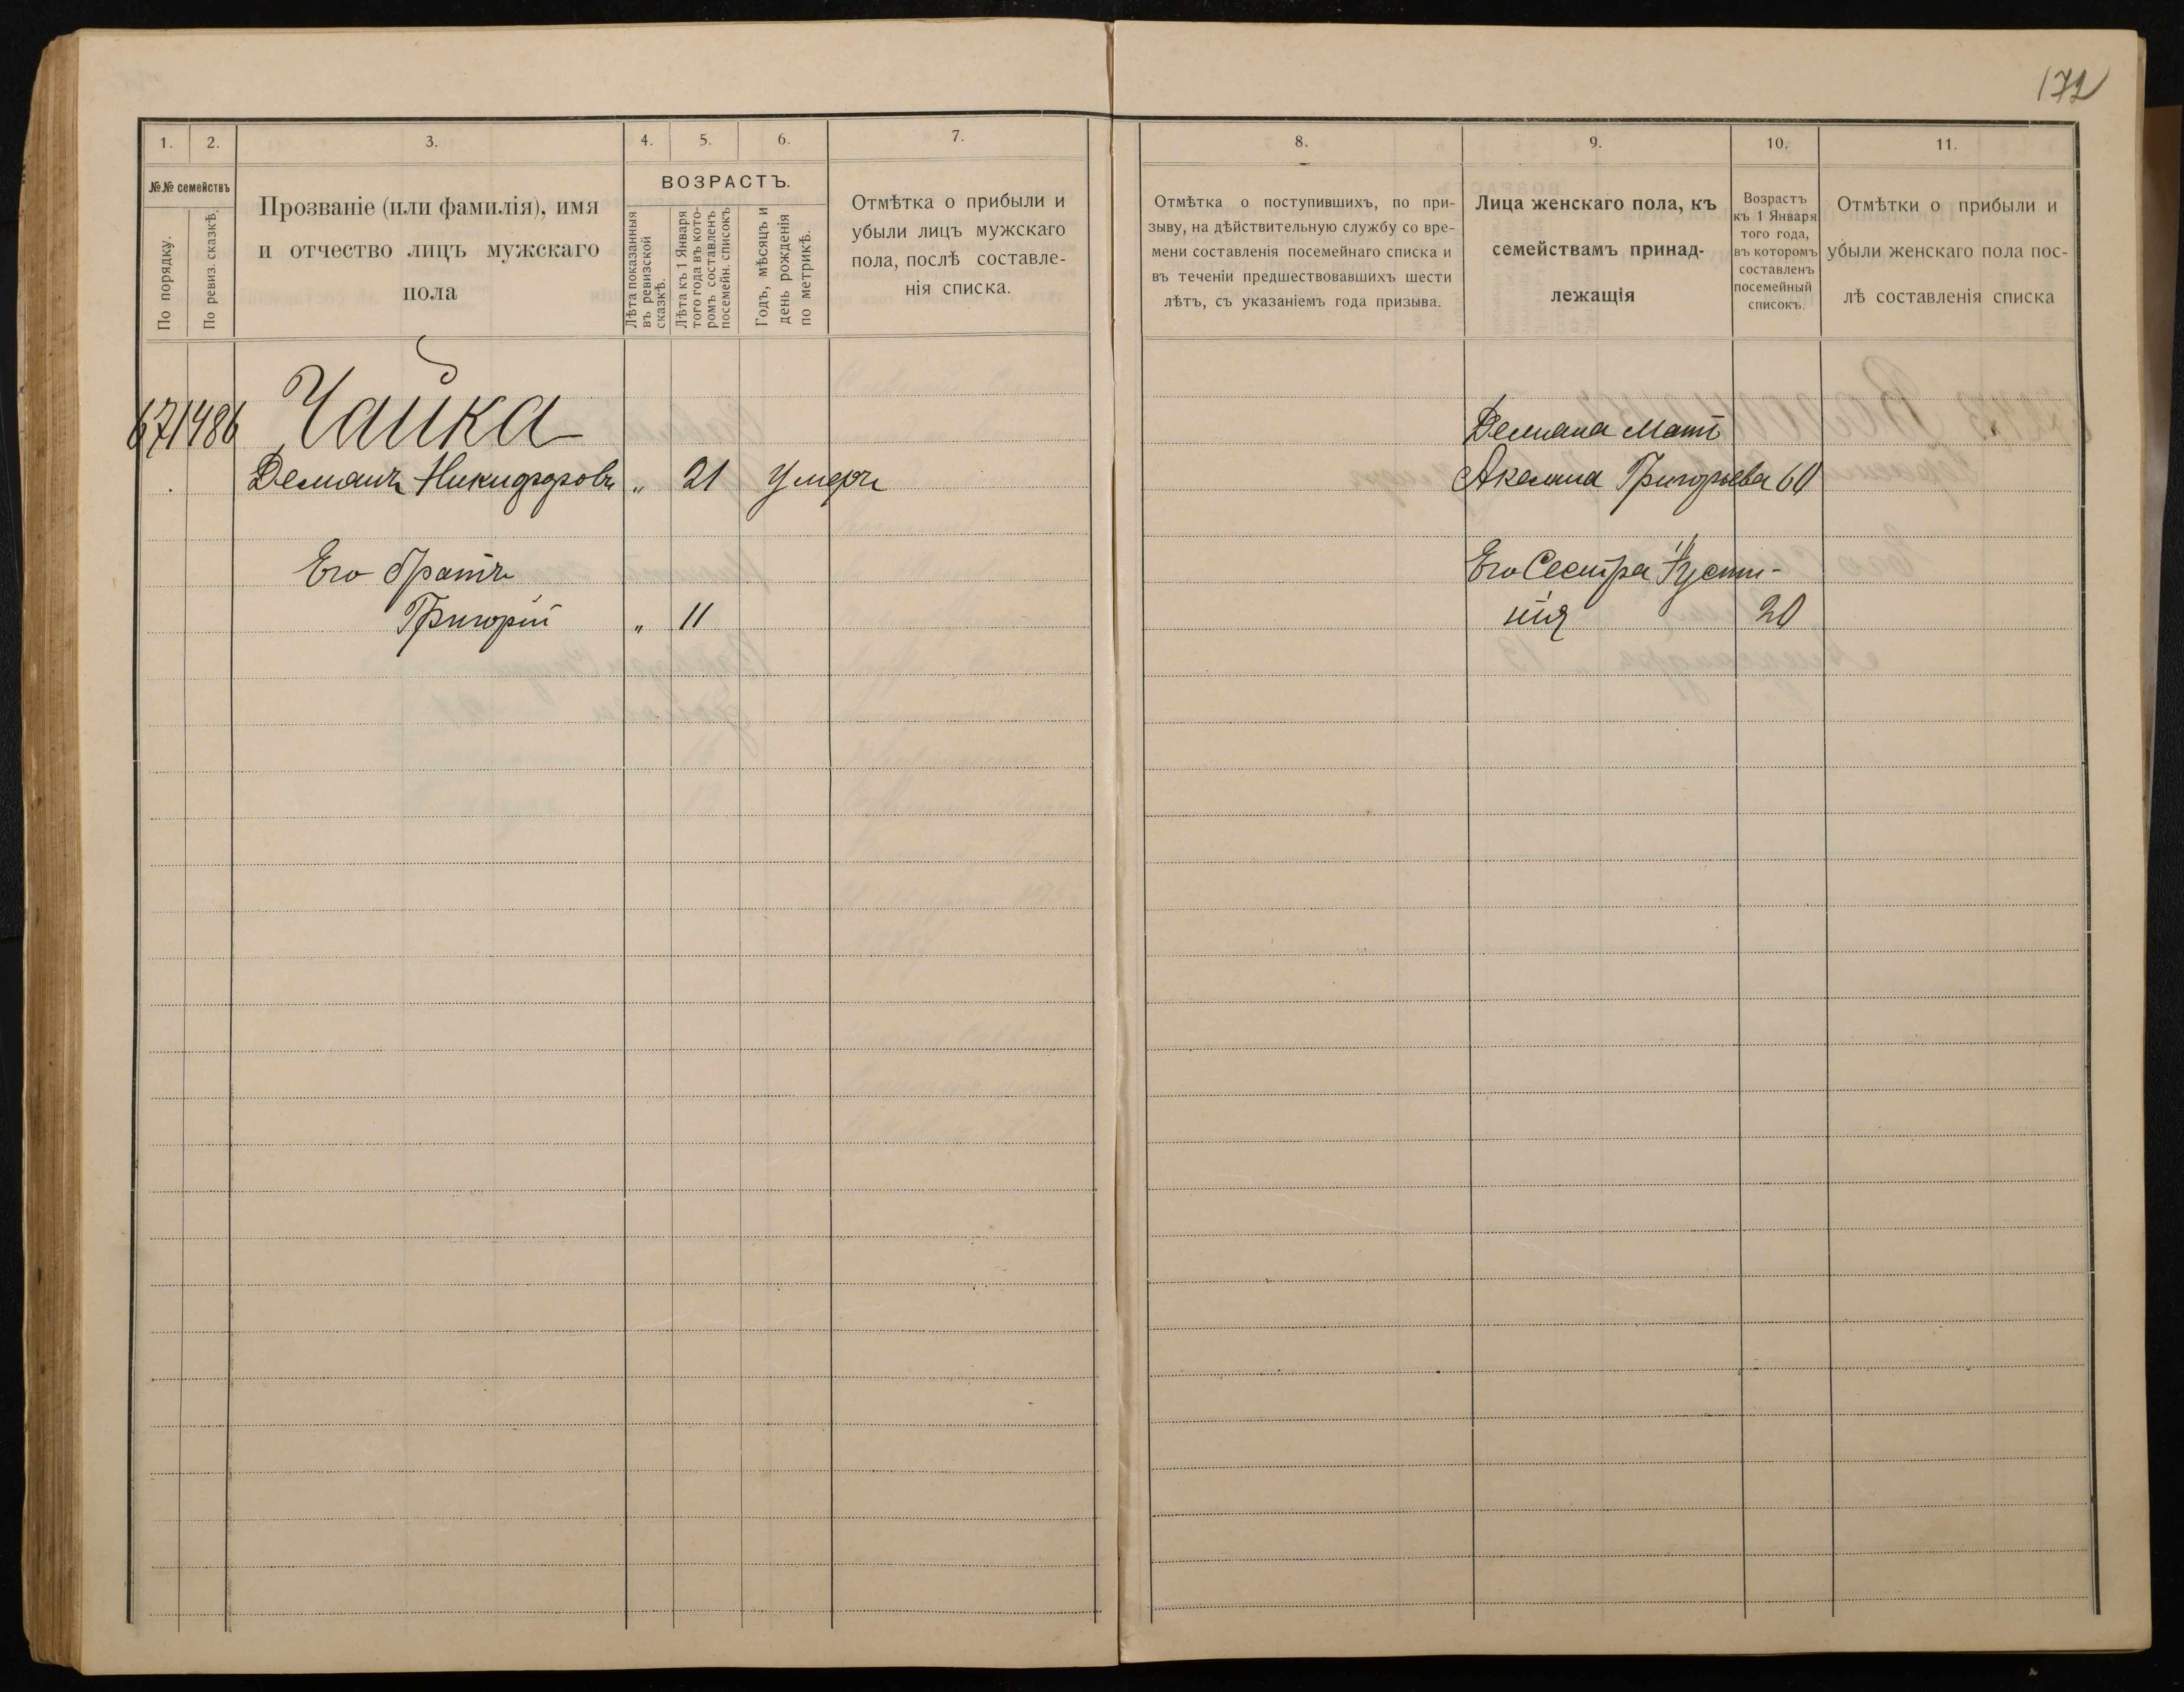 172
1. 2. 3. 4. 5. 6. 7.
№№ семействъ
По порядку.
По ревиз. сказкѣ.
Прозваніе (или фамилія), имя
и отчество лицъ мужскаго
пола
ВОЗРАСТЪ.
Лѣта показанныя
въ ревизской
сказкѣ.
Лѣта къ 1 Января
того года въ кото-
ромъ составленъ
посемейн. списокъ
Годъ, мѣсяцъ и
день рожденія
по метрикѣ.
Отмѣтка о прибыли и
убыли лицъ мужскаго
пола, послѣ составле-
нія списка.
671 486 Чайка
Демьянъ Никифоровъ „ 21 Умеръ
Его братъ
Григорій „ 11
8. 9. 10. 11.
Отмѣтка о поступившихъ, по при-
зыву, на дѣйствительную службу со вре-
мени составленія посемейнаго списка и
въ теченіи предшествовавшихъ шести
лѣтъ, съ указаніемъ года призыва.
Лица женскаго пола, къ
семействамъ принад-
лежащія
Возрастъ
къ 1 Января
того года,
въ которомъ
составленъ
посемейный
списокъ.
Отмѣтки о прибыли и
убыли женскаго пола пос-
лѣ составленія списка
Демьяна Мать
Акелина Григорьева 60
Его Сестра Іусти-
нія 20